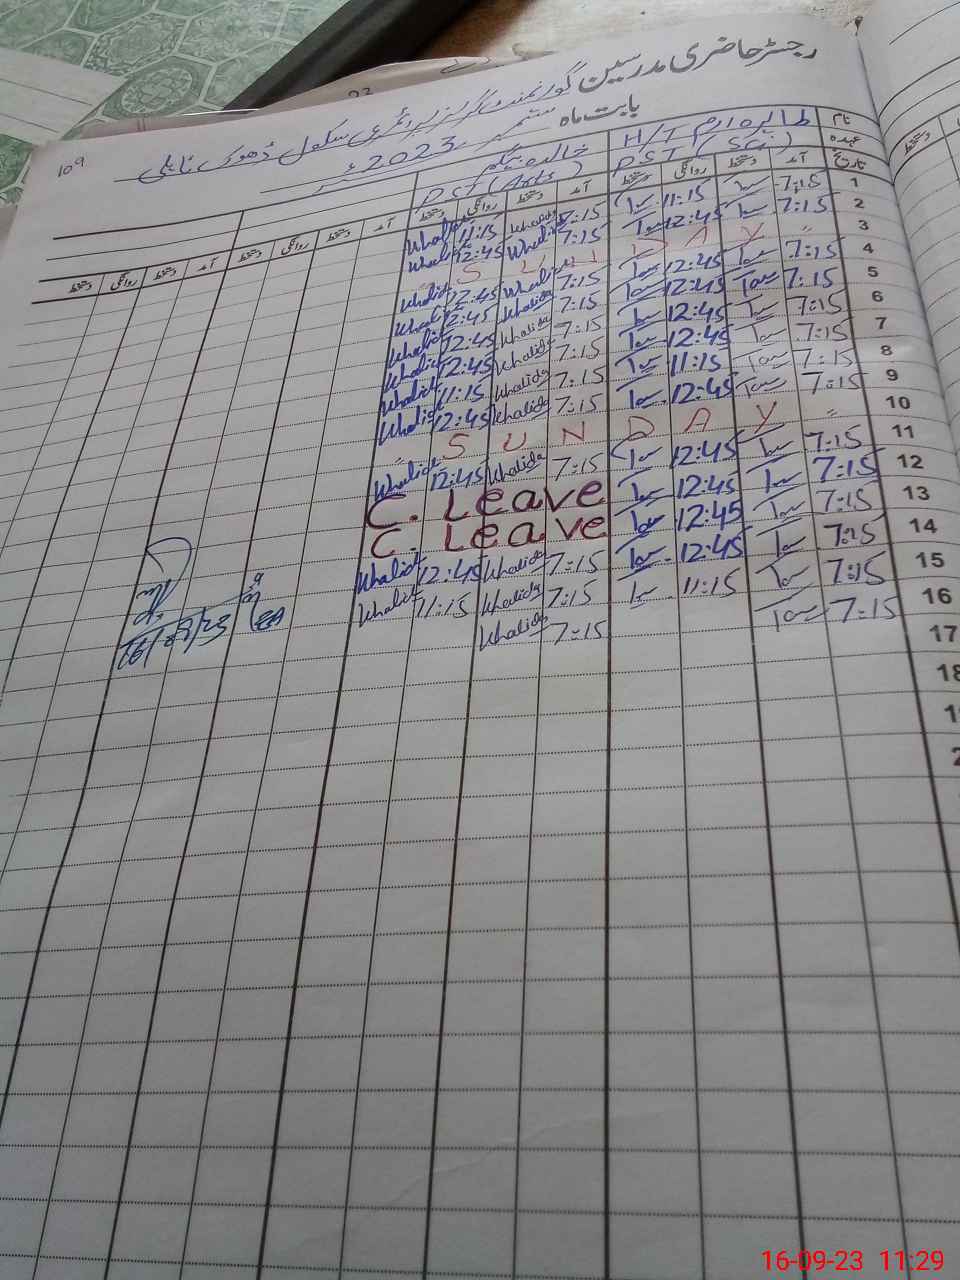 رجسٹر حاضری مدرسین گورنمنٹ گرلز پرائمری سکول ڈھوک
109
بابت ماہ ستمبر 2023
نام طاہرہ ارم H/T خالدہ بیگم
عہدہ PST (Sci) PST (Arts)
تاریخ آمد دستخط روانگی دستخط آمد دستخط روانگی دستخط آمد دستخط روانگی دستخط آمد دستخط روانگی دستخط
1 7:15 11:15 7:15 Khalida 11:15 Khalida
2 7:15 12:45 7:15 Khalida 12:45 Khalida
3 " S U N D A Y "
4 7:15 12:45 7:15 Khalida 12:45 Khalida
5 7:15 12:45 7:15 Khalida 12:45 Khalida
6 7:15 12:45 7:15 Khalida 12:45 Khalida
7 7:15 12:45 7:15 Khalida 12:45 Khalida
8 7:15 11:15 7:15 Khalida 11:15 Khalida
9 7:15 12:45 7:15 Khalida 12:45 Khalida
10 " S U N D A Y "
11 7:15 12:45 7:15 Khalida 12:45 Khalida
12 7:15 12:45 C. Leave
13 7:15 12:45 C. Leave
14 7:15 12:45 7:15 Khalida 12:45 Khalida
15 7:15 11:15 7:15 Khalida 11:15 Khalida
16 7:15 7:15 Khalida
17
18
16-09-23 11:29